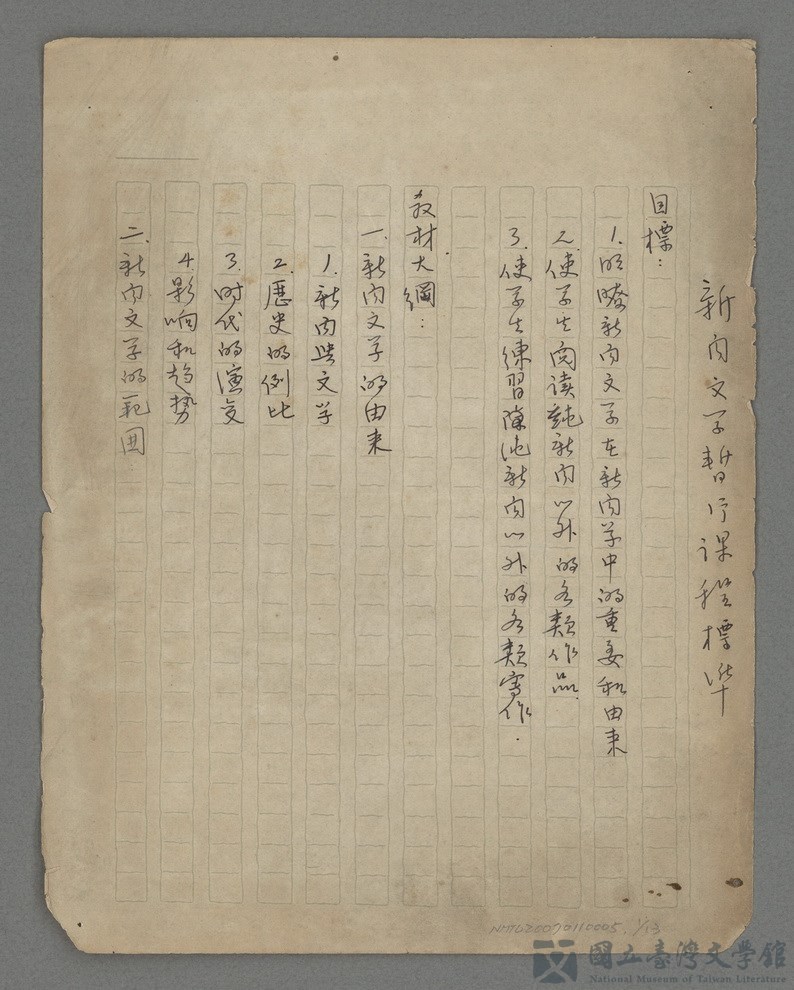 新闻文学暫行课程標準
目標：
1. 明瞭新闻文学在新闻学中的重要和由来
2. 使学生阅读純新闻以外的各类作品
3. 使学生練習除純新闻以外的各类寫作.
教材大綱：
一、新闻文学的由来
1. 新闻與文学
2. 歷史的例比
3. 时代的演变
4. 影响和趋势
二、新闻文学的範围
NMTL20070110005, 1/13
國立臺灣文學館
National Museum of Taiwan Literature